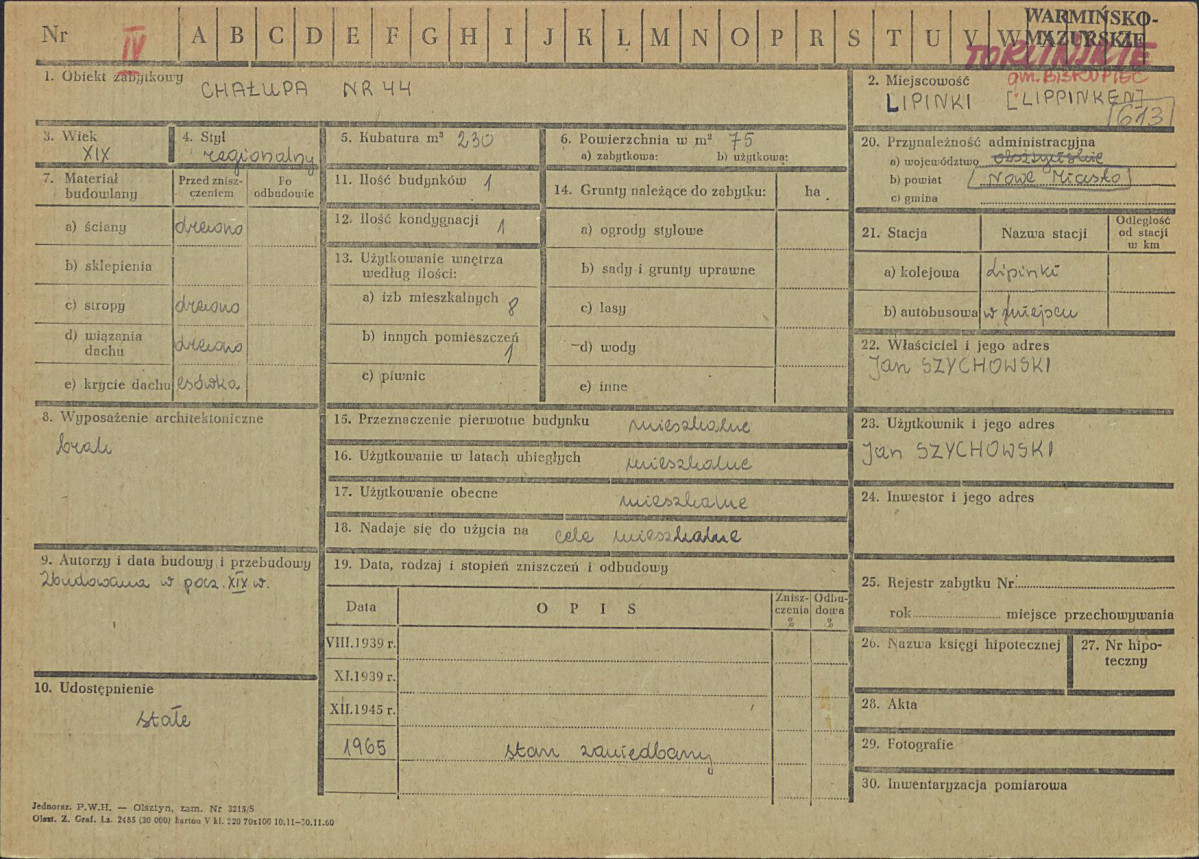 Nr IV A B C D E F G H I J K L Ł M N O P R S T U V W
WARMIŃSKO-
MAZURSKIE
TORUŃSKIE
gm. BISKUPIEC
1. Obiekt zabytkowy
CHAŁUPA NR 44
2. Miejscowość
LIPINKI [LIPPINKEN]
613
3. Wiek
XIX
4. Styl
regionalny
5. Kubatura m³ 230
6. Powierzchnia w m² 75
a) zabytkowa: b) użytkowa:
7. Materiał budowlany
Przed zniszczeniem
Po odbudowie
a) ściany drewno
b) sklepienia
c) stropy drewno
d) wiązania dachu drewno
e) krycie dachu esówka
8. Wyposażenie architektoniczne
brak
9. Autorzy i data budowy i przebudowy
Zbudowana w pocz. XIX w.
10. Udostępnienie
stałe
11. Ilość budynków 1
12. Ilość kondygnacji 1
13. Użytkowanie wnętrza
według ilości:
a) izb mieszkalnych 8
b) innych pomieszczeń 1
c) piwnic
14. Grunty należące do zabytku: ha
a) ogrody stylowe
b) sady i grunty uprawne
c) lasy
d) wody
e) inne
15. Przeznaczenie pierwotne budynku mieszkalne
16. Użytkowanie w latach ubiegłych mieszkalne
17. Użytkowanie obecne mieszkalne
18. Nadaje się do użycia na cele mieszkalne
19. Data, rodzaj i stopień zniszczeń i odbudowy
Data OPIS Zniszczenia % Odbudowa %
VIII.1939 r.
XI.1939 r.
XII.1945 r.
1965 stan zaniedbany
20. Przynależność administracyjna
a) województwo olsztyńskie
b) powiat Nowe Miasto
c) gmina
21. Stacja Nazwa stacji Odległość od stacji w km
a) kolejowa Lipinki
b) autobusowa w miejscu
22. Właściciel i jego adres
Jan SZYCHOWSKI
23. Użytkownik i jego adres
Jan SZYCHOWSKI
24. Inwestor i jego adres
25. Rejestr zabytku Nr
rok miejsce przechowywania
26. Nazwa księgi hipotecznej
27. Nr hipoteczny
28. Akta
29. Fotografie
30. Inwentaryzacja pomiarowa
Jednoraz. P.W.H. — Olsztyn, zam. Nr 3215/S
Olszt. Z. Graf. Lz. 2485 (30 000) karton V kl. 220 70x100 10.11—30.11.60